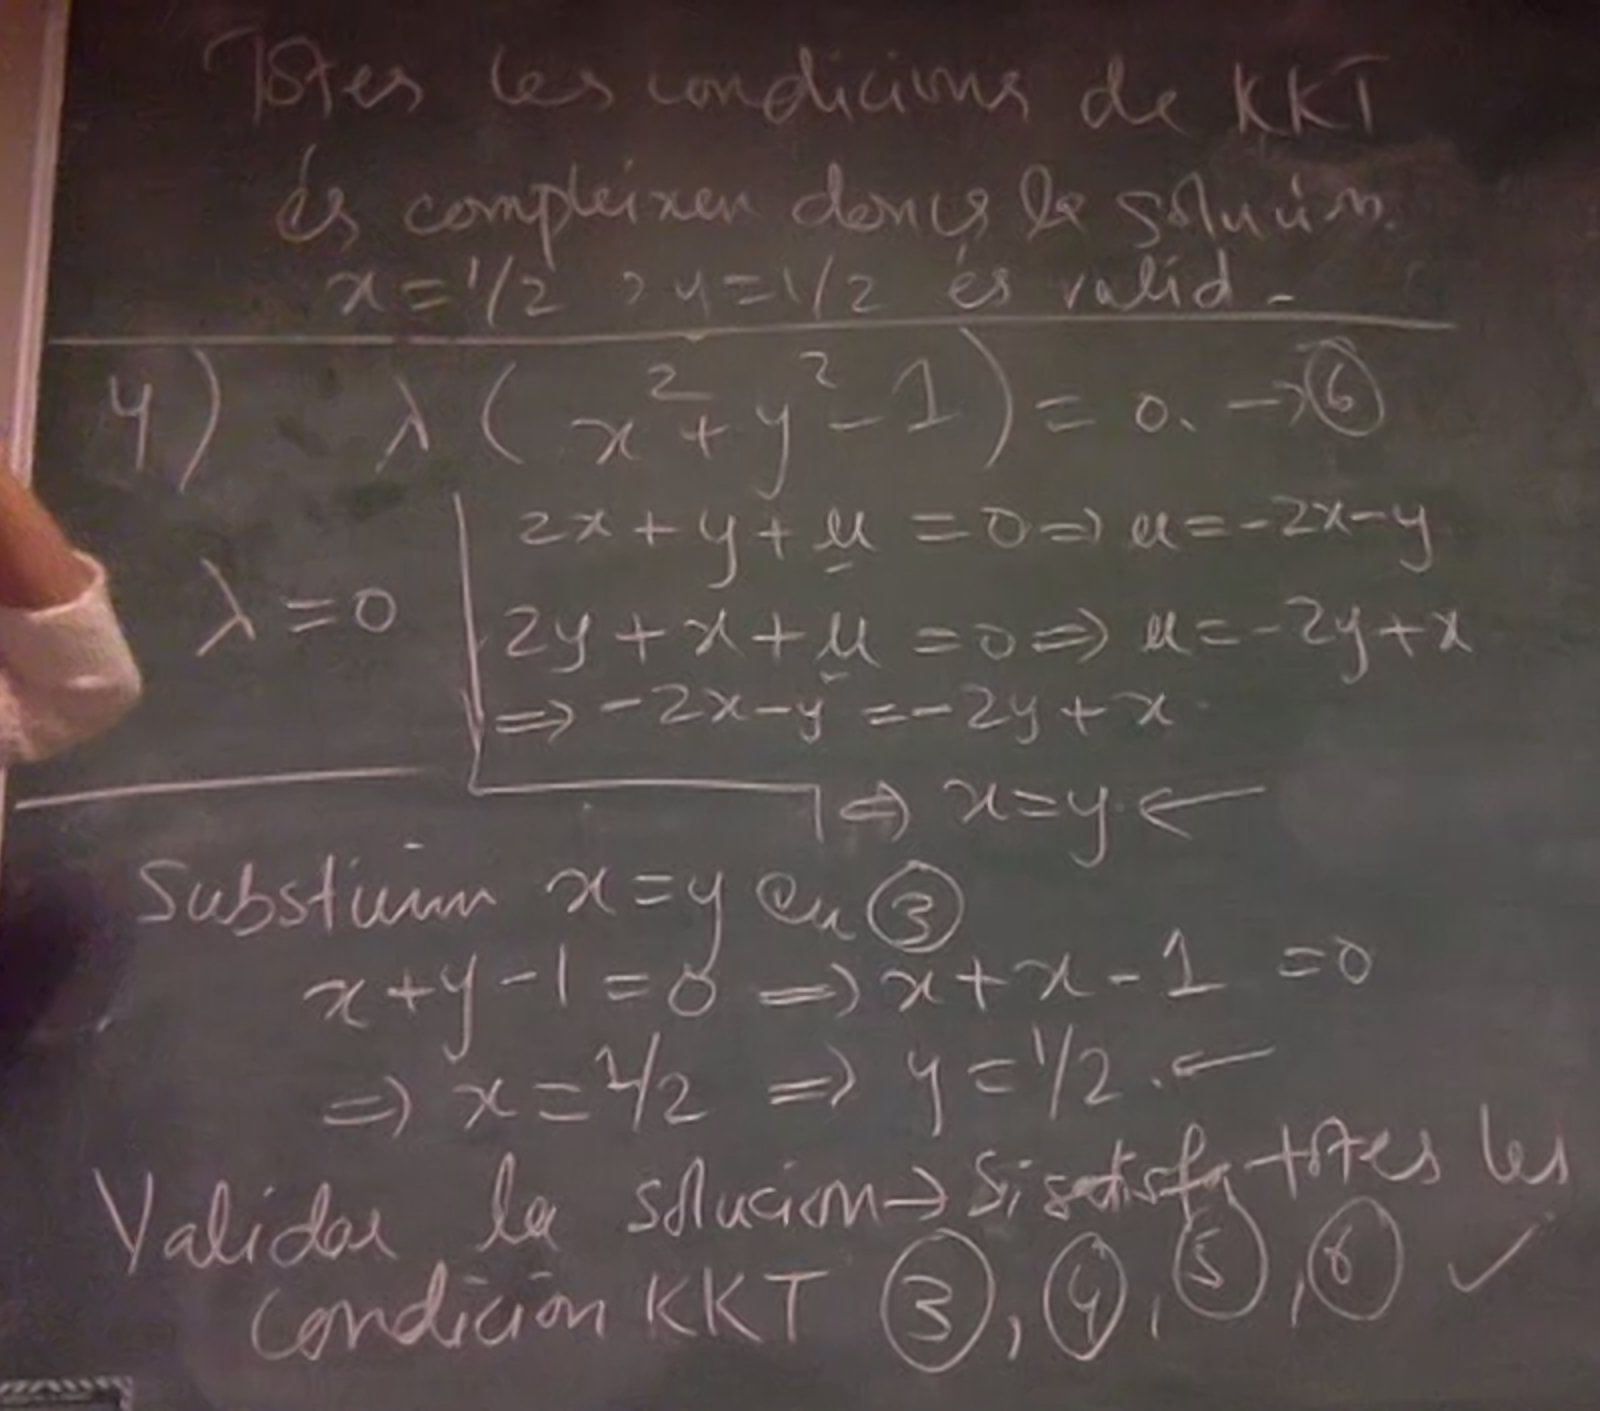 Totes les condicions de KKT
és compleixen doncs la solución
x=1/2, y=1/2 és valid.
4) λ(x²+y²-1)=0. →⑥
2x+y+μ=0⇒μ=-2x-y
λ=0
2y+x+μ=0⇒μ=-2y+x
⇒-2x-y=-2y+x
⇒ x=y ←
Substituim x=y en ③
x+y-1=0⇒x+x-1=0
⇒x=1/2 ⇒ y=1/2.←
Validar la solucion→Si satisfa totes les
condición KKT ③,④,⑤,⑥ ✓